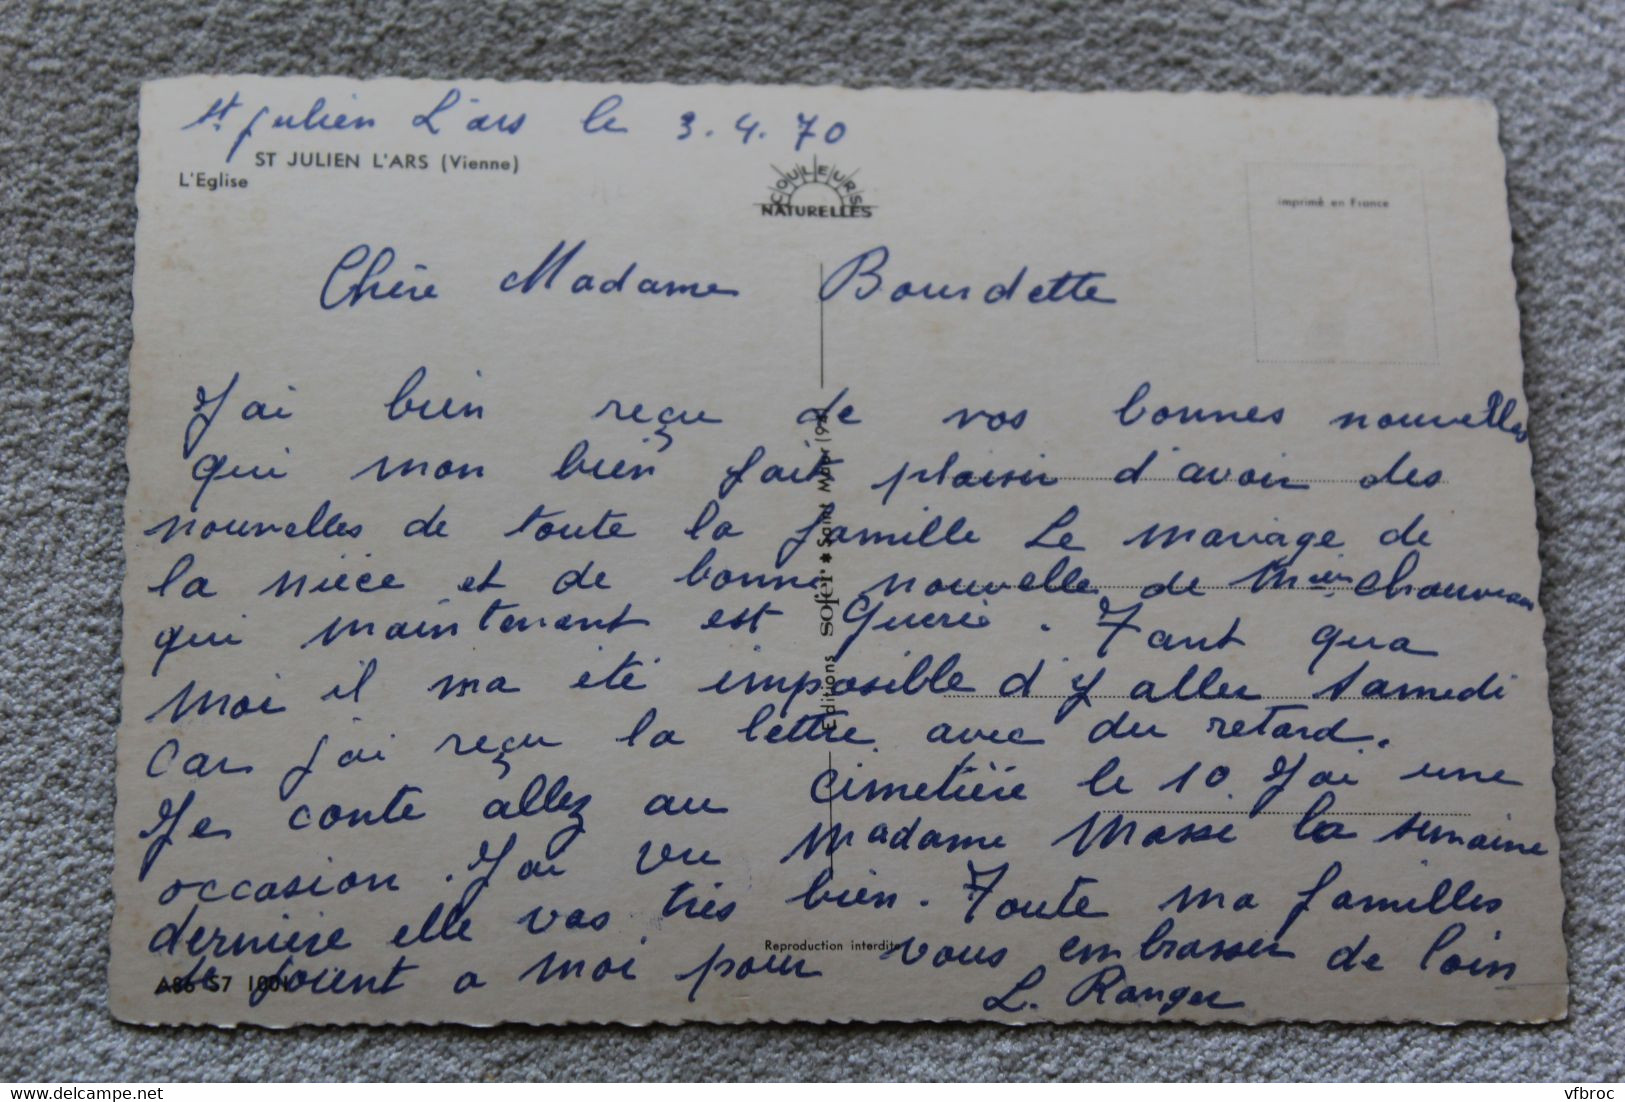 St. Julien L'ars le 3.4.70
ST JULIEN L'ARS (Vienne)
L'Eglise
COULEURS
NATURELLES
imprimé en France
Chère Madame Bourdette
J'ai bien reçu de vos bonnes nouvelles
qui mon bien fait plaisir d'avoir des
nouvelles de toute la famille Le mariage de
la nièce et de bonne nouvelle de
qui maintenant est guerie. Tant qua
moi il ma été imposible d'y aller samedi
car j'ai reçu la lettre avec du retard.
Je conte allez au cimetière le 10. J'ai une
occasion. J'ai vu madame Masse la semaine
dernière elle vas très bien. Toute ma familles
se joient a moi pour vous embrasser de loin
L. Ranger
Editions sofer * Saint Maur (94)
Reproduction interdite
A86 S7 1001
www.delcampe.net
vfbroc